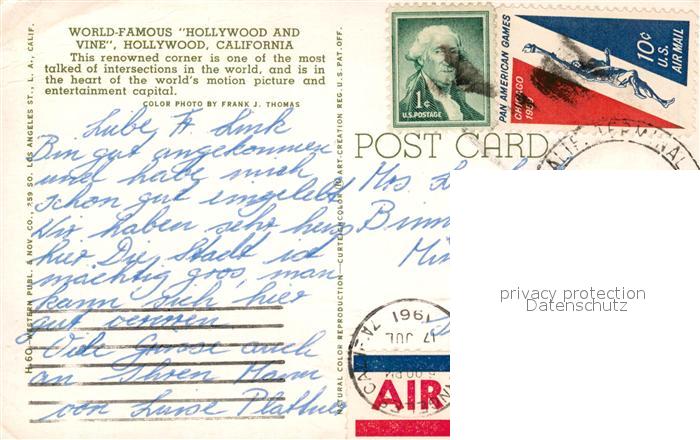 WORLD-FAMOUS "HOLLYWOOD AND
VINE", HOLLYWOOD, CALIFORNIA
This renowned corner is one of the most
talked of intersections in the world, and is in
the heart of the world's motion picture and
entertainment capital.
COLOR PHOTO BY FRANK J. THOMAS
H-60—WESTERN PUBL. & NOV. CO., 259 SO. LOS ANGELES ST., L. A., CALIF.
Liebe Link
Bin gut angekommen
und habe mich
schon gut eingelebt
Wir haben sehr heis
hier Die Stadt ist
mächtig gros, man
kann sich hier
gut
Viele Grüsse auch
an Ihren Mann
von Luise Plattner
NATURAL COLOR REPRODUCTION—CURTEICHCOLOR ART-CREATION REG. U.S. PAT. OFF.
1¢
U.S. POSTAGE
PAN AMERICAN GAMES
CHICAGO
10¢
U.S.
AIR MAIL
POST CARD
TERMINAL
Mrs.
17 JUL
1961
AIR
privacy protection
Datenschutz